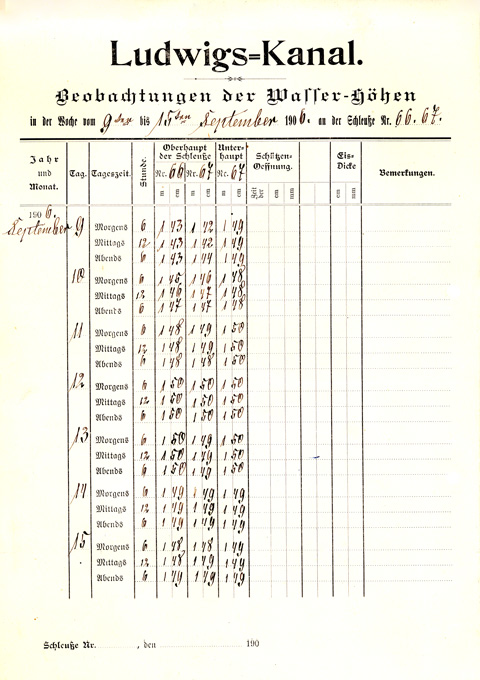 Ludwigs=Kanal.
Beobachtungen der Wasser-Höhen
in der Woche vom 9ten bis 15ten September 1906. an der Schleuße Nr. 66.67.
Jahr und Monat. Tag. Tageszeit. Stunde. Oberhaupt der Schleuße Nr. 66 Nr. 67 Unter-haupt Nr. 67 Schützen-Oeffnung. Eis-Dicke Bemerkungen.
m cm m cm m cm Zeit der cm mm cm cm mm
1906.
September 9 Morgens 6 1 43 1 42 1 49
Mittags 12 1 43 1 42 1 49
Abends 6 1 43 1 44 1 49
10 Morgens 6 1 45 1 46 1 48
Mittags 12 1 46 1 47 1 48
Abends 6 1 47 1 47 1 48
11 Morgens 6 1 48 1 49 1 50
Mittags 12 1 48 1 49 1 50
Abends 6 1 48 1 48 1 50
12 Morgens 6 1 50 1 50 1 50
Mittags 12 1 50 1 50 1 50
Abends 6 1 50 1 50 1 50
13 Morgens 6 1 50 1 49 1 50
Mittags 12 1 50 1 49 1 50
Abends 6 1 50 1 49 1 50
14 Morgens 6 1 49 1 49 1 49
Mittags 12 1 49 1 49 1 49
Abends 6 1 49 1 49 1 49
15 Morgens 6 1 48 1 48 1 49
Mittags 12 1 48 1 49 1 49
Abends 6 1 49 1 49 1 49
Schleuße Nr. , den 190